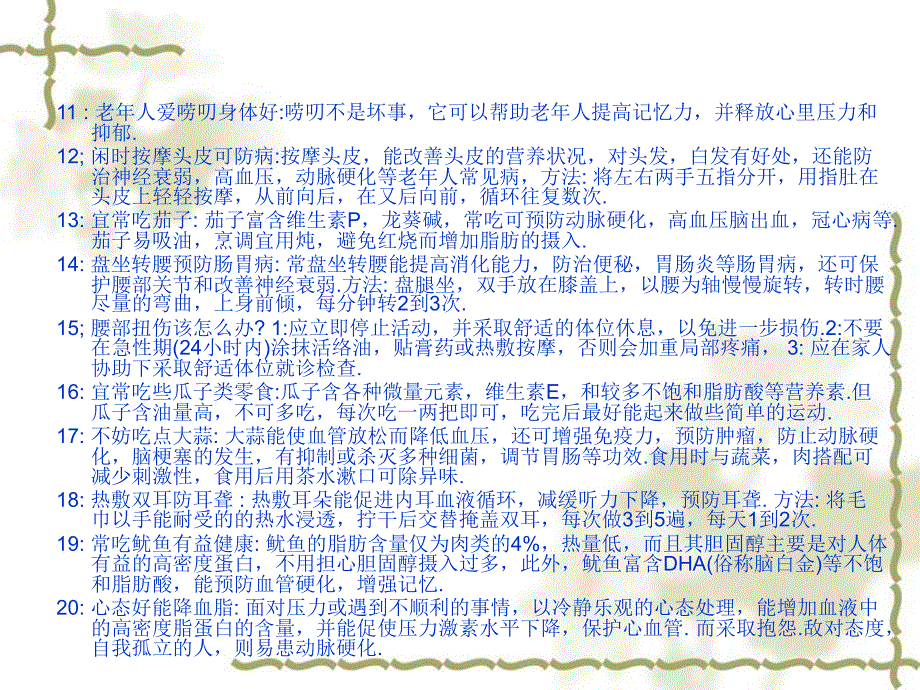 11 : 老年人爱唠叨身体好:唠叨不是坏事，它可以帮助老年人提高记忆力，并释放心里压力和
抑郁.
12; 闲时按摩头皮可防病:按摩头皮，能改善头皮的营养状况，对头发，白发有好处，还能防
治神经衰弱，高血压，动脉硬化等老年人常见病，方法: 将左右两手五指分开，用指肚在
头皮上轻轻按摩，从前向后，在又后向前，循环往复数次.
13: 宜常吃茄子: 茄子富含维生素P，龙葵碱，常吃可预防动脉硬化，高血压脑出血，冠心病等.
茄子易吸油，烹调宜用炖，避免红烧而增加脂肪的摄入.
14: 盘坐转腰预防肠胃病: 常盘坐转腰能提高消化能力，防治便秘，胃肠炎等肠胃病，还可保
护腰部关节和改善神经衰弱.方法: 盘腿坐，双手放在膝盖上，以腰为轴慢慢旋转，转时腰
尽量的弯曲，上身前倾，每分钟转2到3次.
15; 腰部扭伤该怎么办? 1:应立即停止活动，并采取舒适的体位休息，以免进一步损伤.2:不要
在急性期(24小时内)涂抹活络油，贴膏药或热敷按摩，否则会加重局部疼痛， 3: 应在家人
协助下采取舒适体位就诊检查.
16: 宜常吃些瓜子类零食:瓜子含各种微量元素，维生素E，和较多不饱和脂肪酸等营养素.但
瓜子含油量高，不可多吃，每次吃一两把即可，吃完后最好能起来做些简单的运动.
17: 不妨吃点大蒜: 大蒜能使血管放松而降低血压，还可增强免疫力，预防肿瘤，防止动脉硬
化，脑梗塞的发生，有抑制或杀灭多种细菌，调节胃肠等功效.食用时与蔬菜，肉搭配可
减少刺激性，食用后用茶水漱口可除异味.
18: 热敷双耳防耳聋 : 热敷耳朵能促进内耳血液循环，减缓听力下降，预防耳聋. 方法: 将毛
巾以手能耐受的的热水浸透，拧干后交替掩盖双耳，每次做3到5遍，每天1到2次.
19: 常吃鱿鱼有益健康: 鱿鱼的脂肪含量仅为肉类的4%，热量低，而且其胆固醇主要是对人体
有益的高密度蛋白，不用担心胆固醇摄入过多，此外，鱿鱼富含DHA(俗称脑白金)等不饱
和脂肪酸，能预防血管硬化，增强记忆.
20: 心态好能降血脂: 面对压力或遇到不顺利的事情，以冷静乐观的心态处理，能增加血液中
的高密度脂蛋白的含量，并能促使压力激素水平下降，保护心血管. 而采取抱怨.敌对态度，
自我孤立的人，则易患动脉硬化.